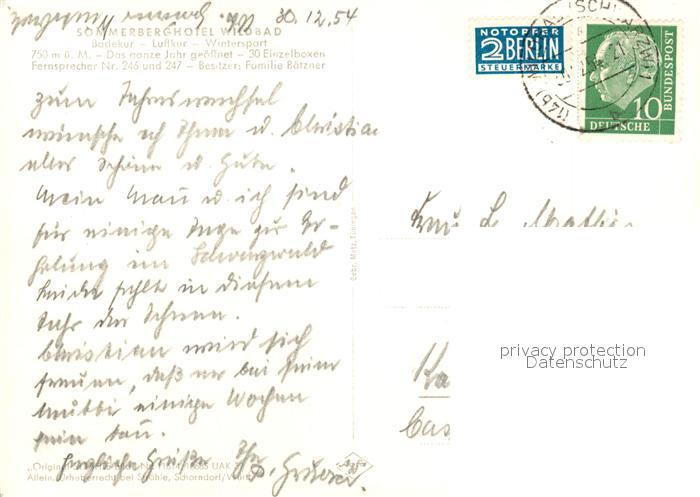 30.12.54
SOMMERBERGHOTEL WILDBAD
Badekur – Luftkur – Wintersport
750 m ü. M. – Das ganze Jahr geöffnet – 30 Einzelboxen
Fernsprecher Nr. 246 und 247 – Besitzer: Familie Bätzner
zum Jahreswechsel
wünsche ich Ihnen u. Christian
alles Schöne u. Gute.
Mein Mann u. ich sind
für einige Tage zur Er-
holung im Schwarzwald
leider fehlt in diesem
Jahr der Schnee.
Christian wird sich
freuen, daß er bei seiner
Mutti einige Wochen
sein kann.
Herzliche Grüße Ihre
Allein. Urheberrecht bei Stähle, Schorndorf/Württ.
Gebr. Metz, Tübingen
NOTOPFER
2 BERLIN
STEUERMARKE
10
DEUTSCHE BUNDESPOST
Frau L.
privacy protection
Datenschutz